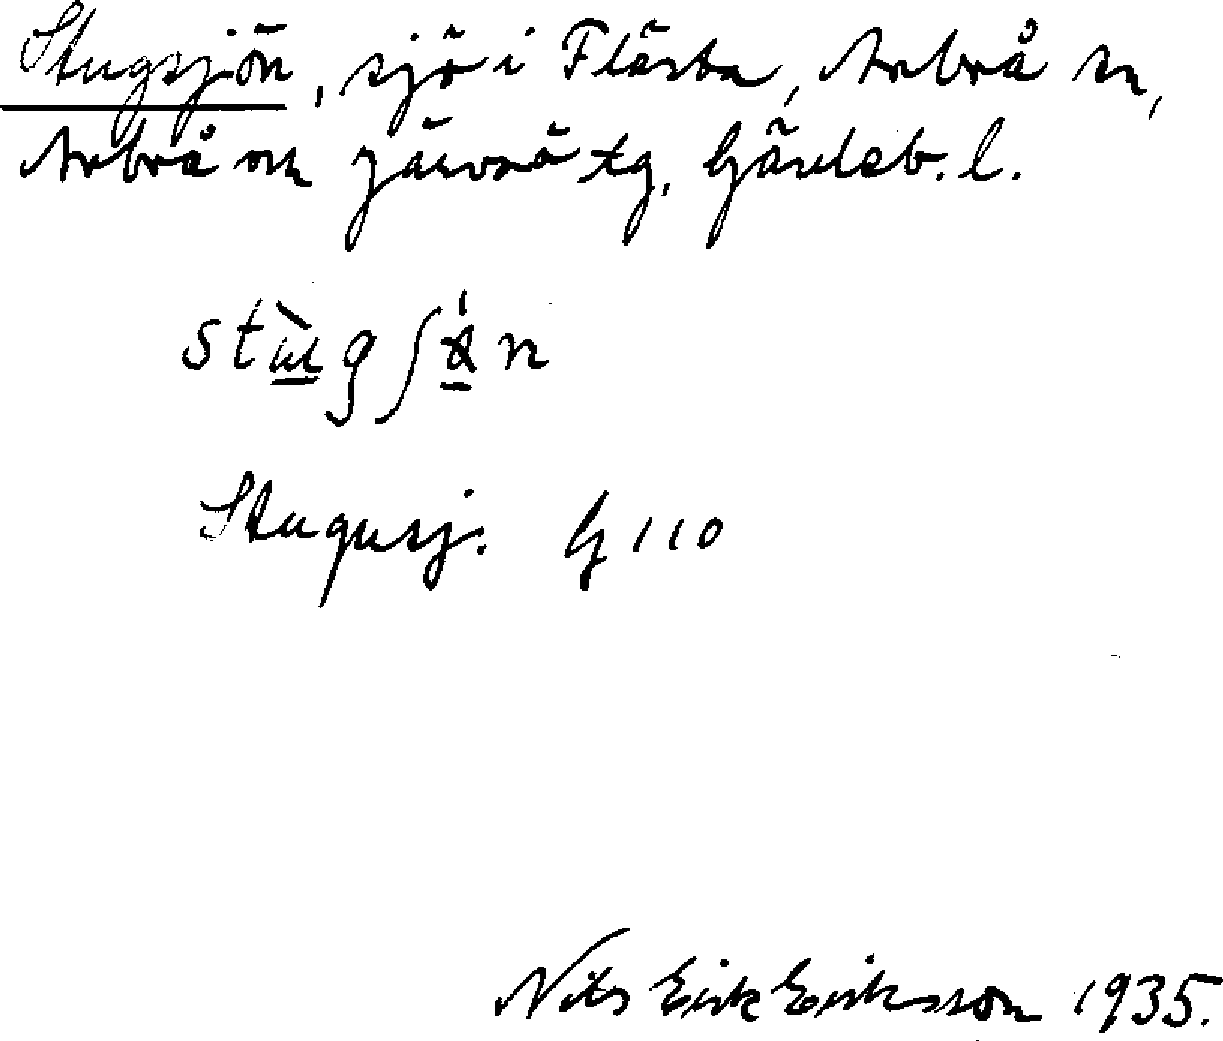 Stugsjön, sjö i Flästa, Arbrå sn,
Arbrå o Järvsö tg, Gävleb. l.
Stugusj. G 110
Nils Erik Eriksson 1935.